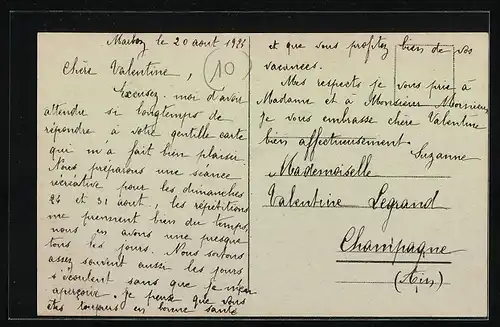 Marboz le 20 août 19
10
Chère Valentine,
Excusez-moi d'avoir
attendre si longtemps de
répondre à votre gentille carte
qui m'a fait bien plaisir.
Nous préparons une séance
récréative pour les dimanches
24 et 31 août, les répétitions
me prennent bien du temps,
nous en avons une presque
tous les jours. Nous sortons
assez souvent aussi les jours
s'écoulent sans que je m'en
aperçoive. Je pense que vous
êtes toujours en bonne santé
et que vous profitez bien de vos
vacances.
Mes respects je vous prie à
Madame et à Monsieur Mornieux
je vous embrasse chère Valentine
bien affectueusement.
Suzanne
Mademoiselle
Valentine Legrand
Champagne
(Ain)